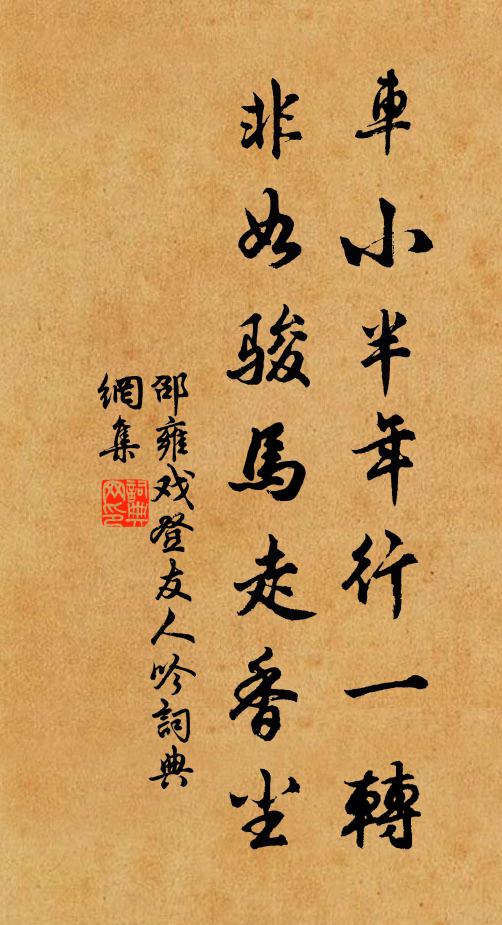 車小半年行一轉
非如駿馬走香尘
邵雍戏登友人吟詞典
網集
詞典網印